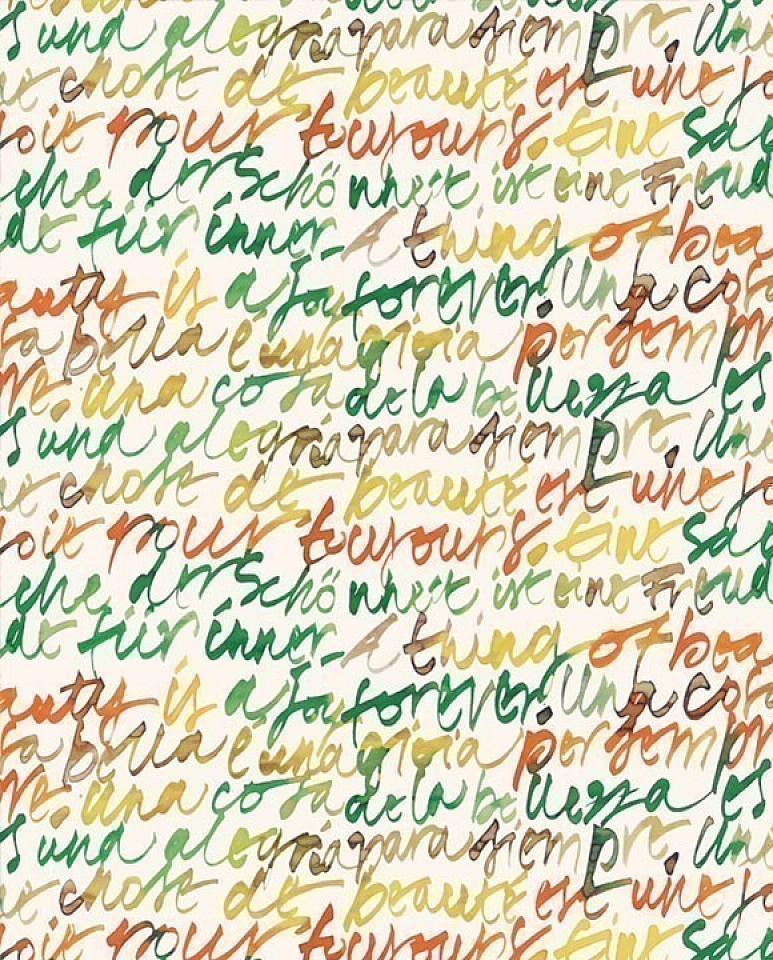 s una alegria para siempre. Une
ue chose de beauté est une jo
oie pour toujours. Eine sac
che der Schönheit ist eine Freud
de für immer. A thing of bea
auty is a joy forever. Una cosa
sa bella è una gioia per sempr
re. una cosa de la belleza es
s una alegria para siempre. Une
ue chose de beauté est une jo
oie pour toujours. Eine sac
che der Schönheit ist eine Freud
de für immer. A thing of bea
auty is a joy forever. Una cosa
sa bella è una gioia per sempr
re. una cosa de la belleza es
s una alegria para siempre. Une
ue chose de beauté est une jo
oie pour toujours. Eine sac